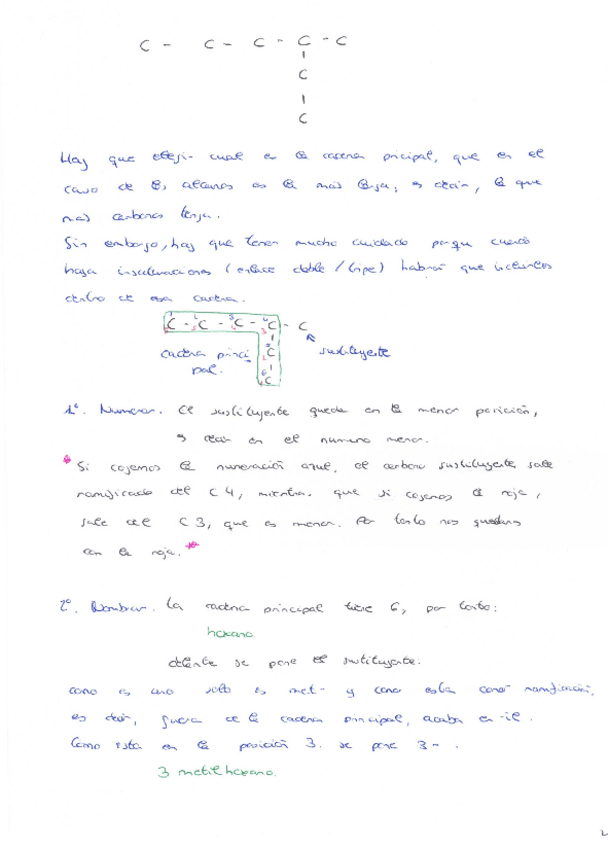 C - C - C - C - C
C
C
Hay que elegir cual es la cadena principal, que en el
caso de los alcanos es la más larga, es decir, la que
más carbonos tenga.
Sin embargo, hay que tener mucho cuidado porque cuando
haya insaturaciones (enlace doble / triple) habrá que incluirlos
dentro de esa cadena.
1 2 3 4
C - C - C - C - C
cadena princi C sustituyente
pal. C
1º. Numerar. El sustituyente quede en la menor posición,
es decir en el numero menor.
* Si cojemos la numeración azul, el carbono sustituyente sale
ramificado del C4, mientras que si cojemos la roja,
sale del C3, que es menor. Por tanto nos quedamos
con la roja. *
2º. Nombrar. La cadena principal tiene 6, por tanto:
hexano
delante se pone el sustituyente.
como es uno solo es met- y como esta como ramificación,
es decir, fuera de la cadena principal, acaba en -il.
Como esta en la posición 3. se pone 3-.
3 metilhexano.